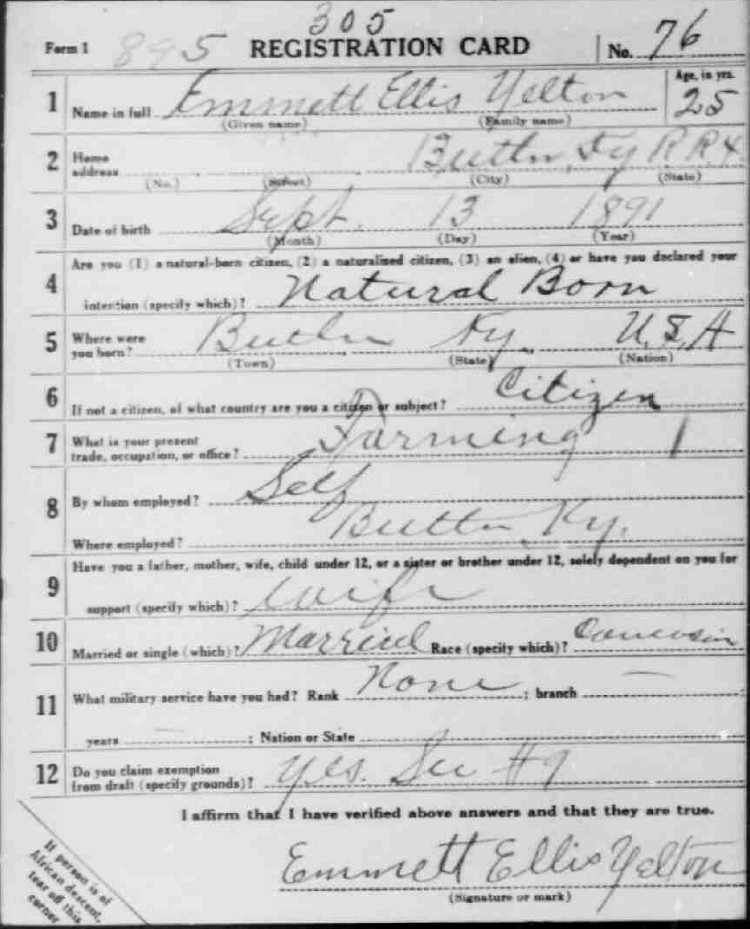 305
Form 1 895 REGISTRATION CARD No. 76
1 Name in full Emmett Ellis Yelton Age, in yrs. 25
(Given name) (Family name)
2 Home address Butler, Ky R R 4
(No.) (Street) (City) (State)
3 Date of birth Sept. 13 1891
(Month) (Day) (Year)
4 Are you (1) a natural-born citizen, (2) a naturalized citizen, (3) an alien, (4) or have you declared your
intention (specify which)? Natural Born
5 Where were you born? Butler Ky. U.S.A
(Town) (State) (Nation)
6 If not a citizen, of what country are you a citizen or subject? Citizen
7 What is your present trade, occupation, or office? Farming 1
8 By whom employed? Self
Where employed? Butler Ky.
9 Have you a father, mother, wife, child under 12, or a sister or brother under 12, solely dependent on you for
support (specify which)? Wife
10 Married or single (which)? Married Race (specify which)?
11 What military service have you had? Rank None ; branch —
years — ; Nation or State
12 Do you claim exemption from draft (specify grounds)? Yes. See #9
I affirm that I have verified above answers and that they are true.
Emmett Ellis Yelton
(Signature or mark)
If person is of
African descent,
tear off this
corner